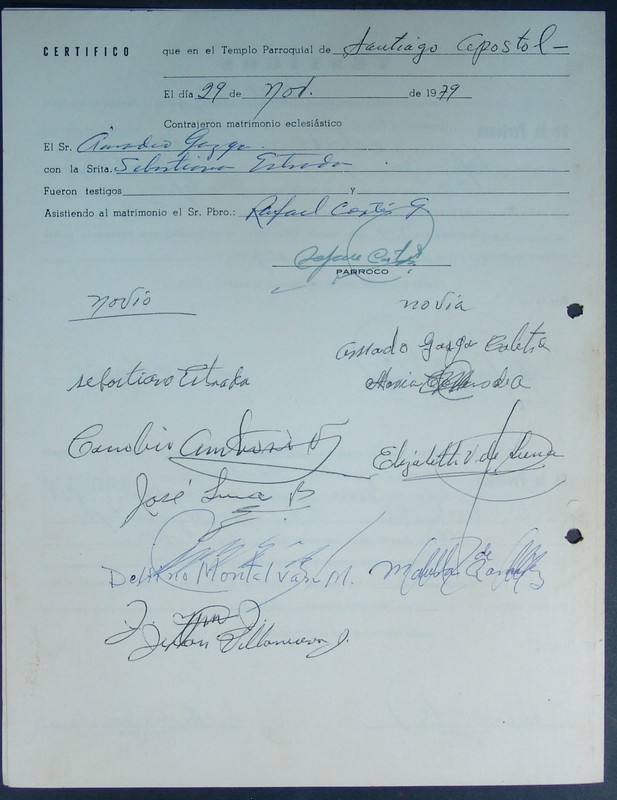 CERTIFICO que en el Templo Parroquial de Santiago Apostol —
El día 29 de Nov. de 1979
Contrajeron matrimonio eclesiástico
El Sr. Amadeo Gazga.
con la Srita. Sebastiana Estrada.
Fueron testigos y
Asistiendo al matrimonio el Sr. Pbro.: Rafael Cortés G
Rafael Cortés
PARROCO
novio novia
Amado Gazga
Sebastiana Estrada Maria
José Luna B Elizabeth V. de Luna
Delfino Montalván M. de
Villanueva J.